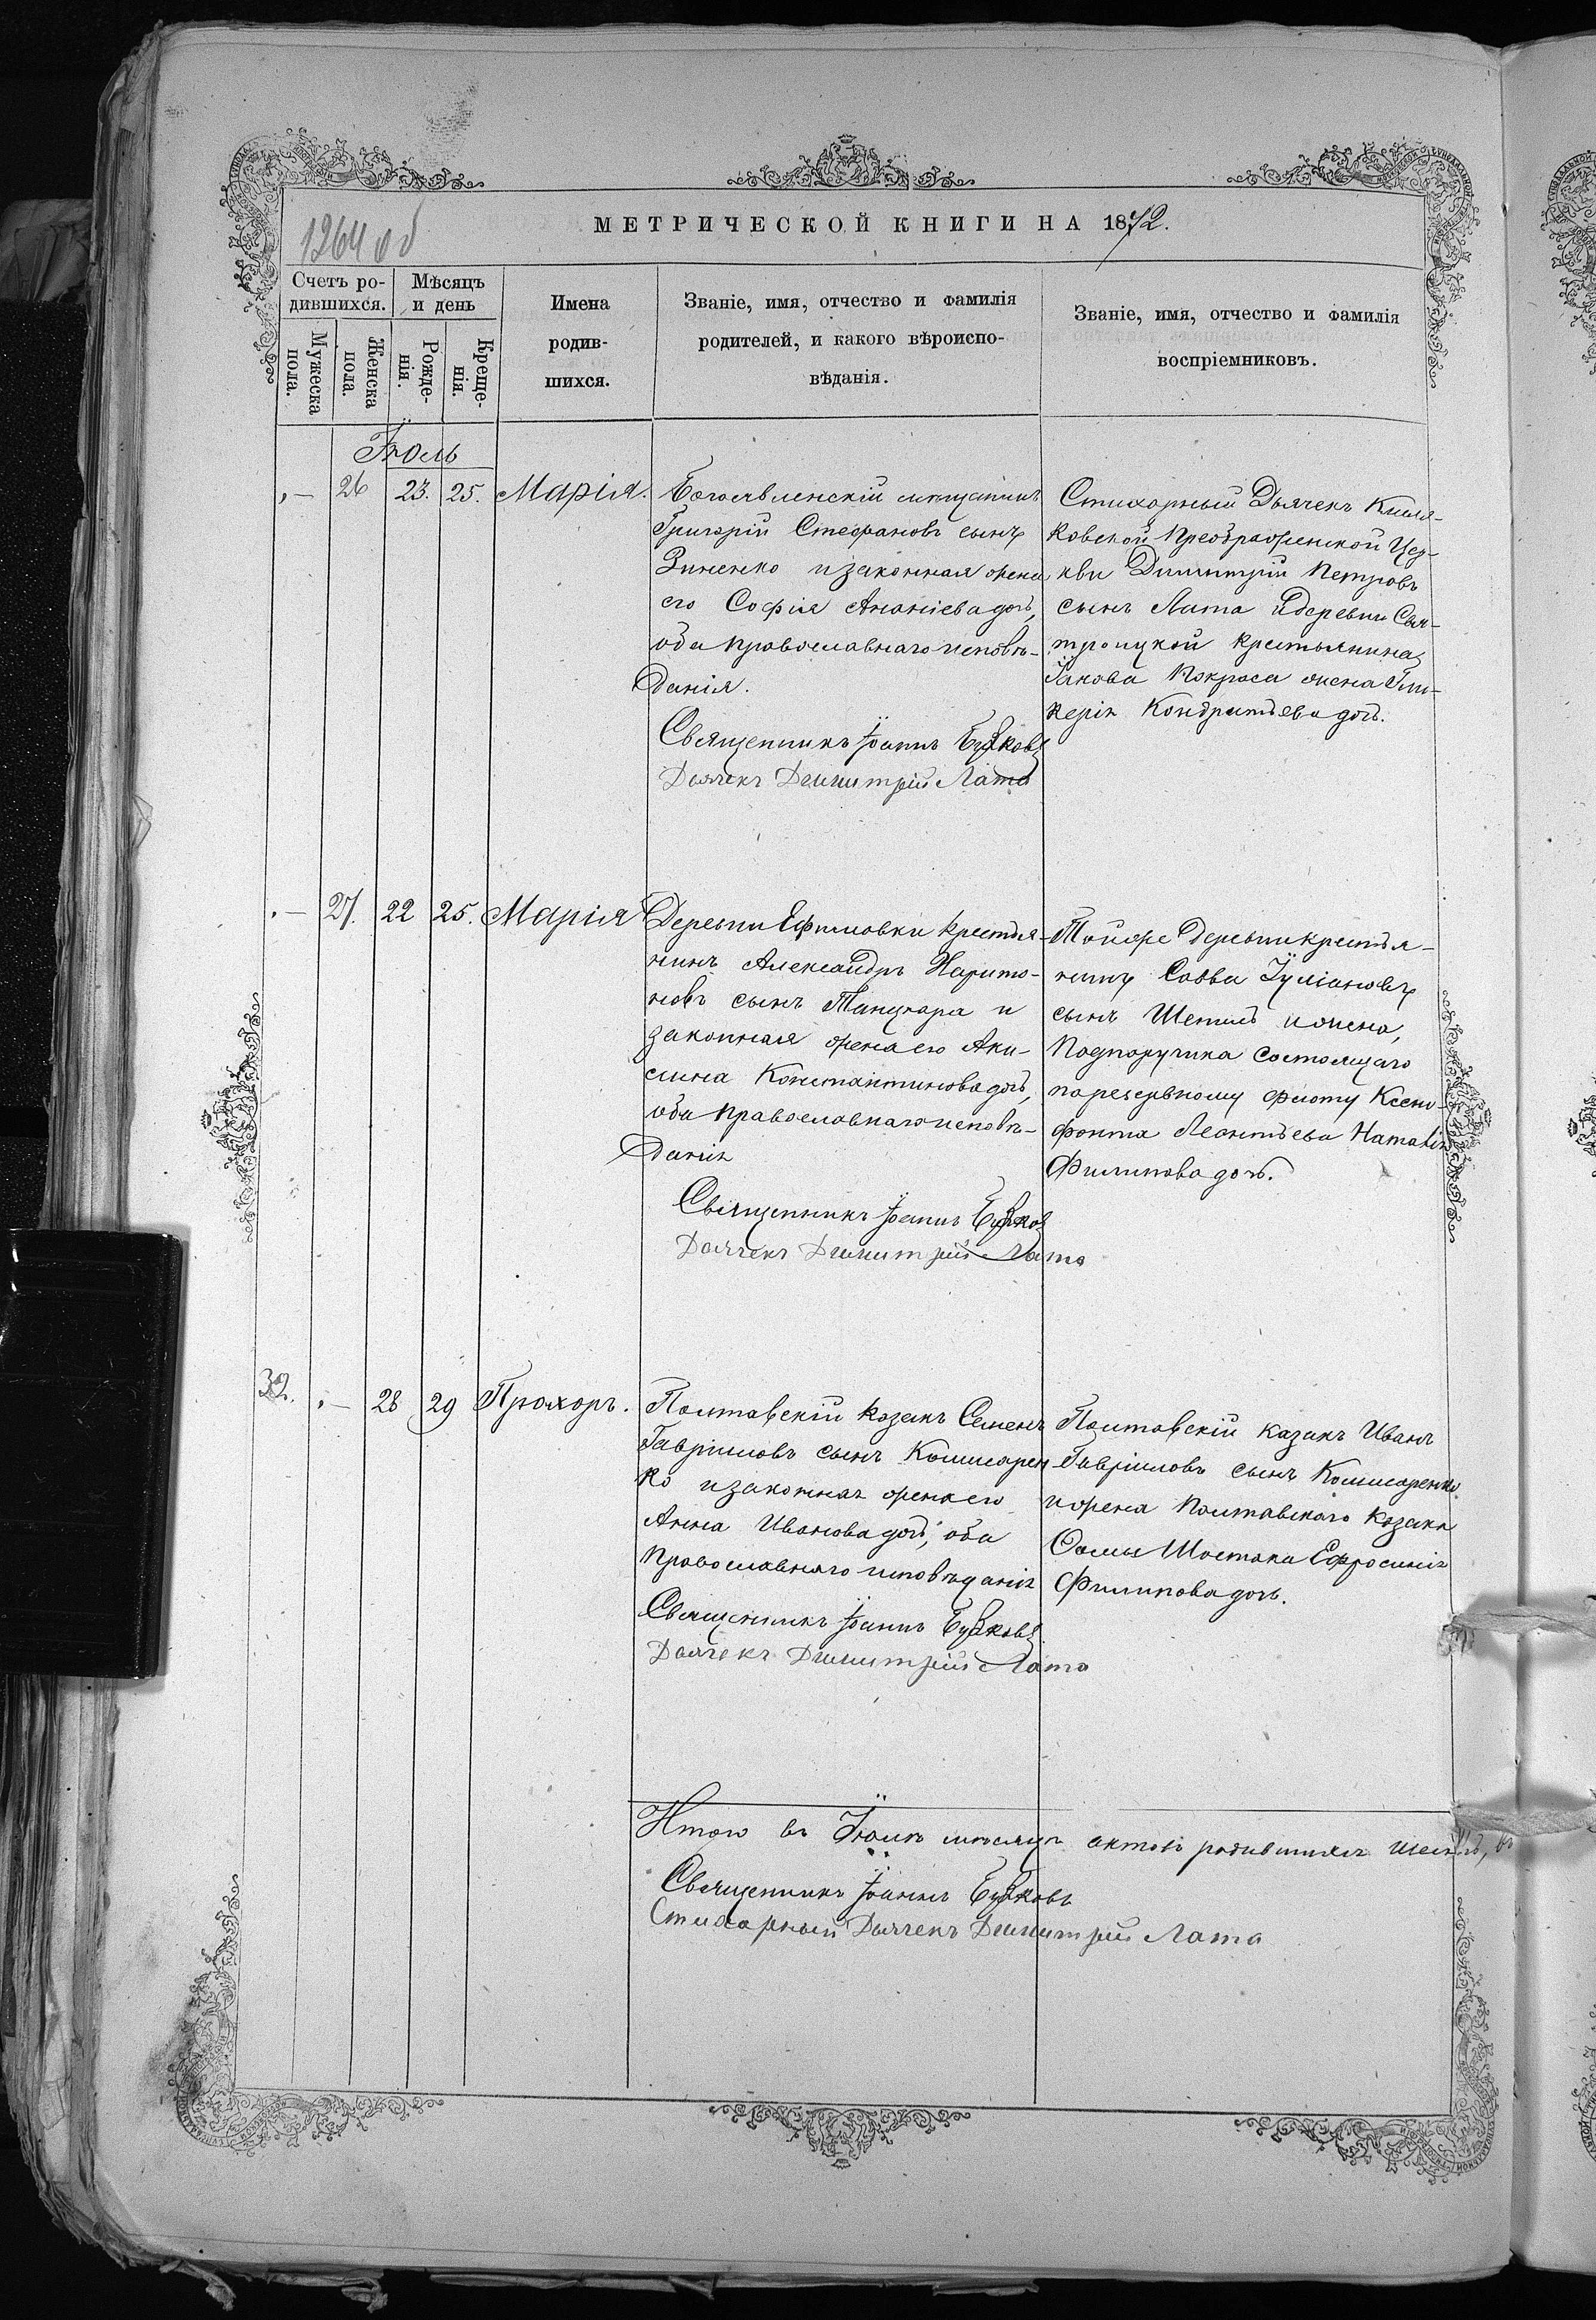 1264 об
МЕТРИЧЕСКОЙ КНИГИ НА 1872.
Счетъ ро-
дившихся.
Мѣсяцъ
и день
Мужеска
пола.
Женска
пола.
Рожде-
нія.
Креще-
нія.
Имена
родив-
шихся.
Званіе, имя, отчество и фамилія
родителей, и какого вѣроиспо-
вѣданія.
Званіе, имя, отчество и фамилія
воспріемниковъ.
Іюль
„— 26 23. 25. Марія.
Богоявленскій мѣщанинъ
Григорій Стефановъ сынъ
Зиненко и законная жена
его Софія Ананіева дочь,
оба православнаго исповѣ-
данія.
Священникъ Іоаннъ
Дьячекъ Димитрій Лата
Стихарный Дьячекъ
ковской Преображенской Цер-
кви Димитрій Петровъ
сынъ Лата и деревни Свя-
троицкой крестьянина
Іакова Покраса жена Гли-
керія Кондратьева дочь.
„— 27. 22 25. Марія
Деревни Ефимовки крестья-
нинъ Александръ Харито-
новъ сынъ Танцюра и
законная жена его Аки-
лина Константинова дочь,
оба православнаго исповѣ-
данія
Священникъ Іоаннъ
Дьячекъ Димитрій Лата
Той же деревни крестья-
нинъ Савва Іуліановъ
сынъ и жена
Подпоручика состоящаго
по резервному флоту Ксено-
фонта Леонтьева Наталія
Филипова дочь.
32. „— 28 29 Прохоръ.
Полтавскій козакъ Семенъ
Гавріиловъ сынъ Коммисарен
ко и законная жена его
Анна Иванова дочь, оба
православнаго исповѣданія
Священникъ Іоаннъ
Дьячекъ Димитрій Лата
Полтавскій казакъ Иванъ
Гавріиловъ сынъ Коммисаренко
и жена Полтавскаго Козака
Фомы Шостака Ефросинія
Филипова дочь.
Итого въ Іюлѣ мѣсяцѣ актовъ родившихся
Священникъ Іоаннъ
Стихарный Дьячекъ Димитрій Лата